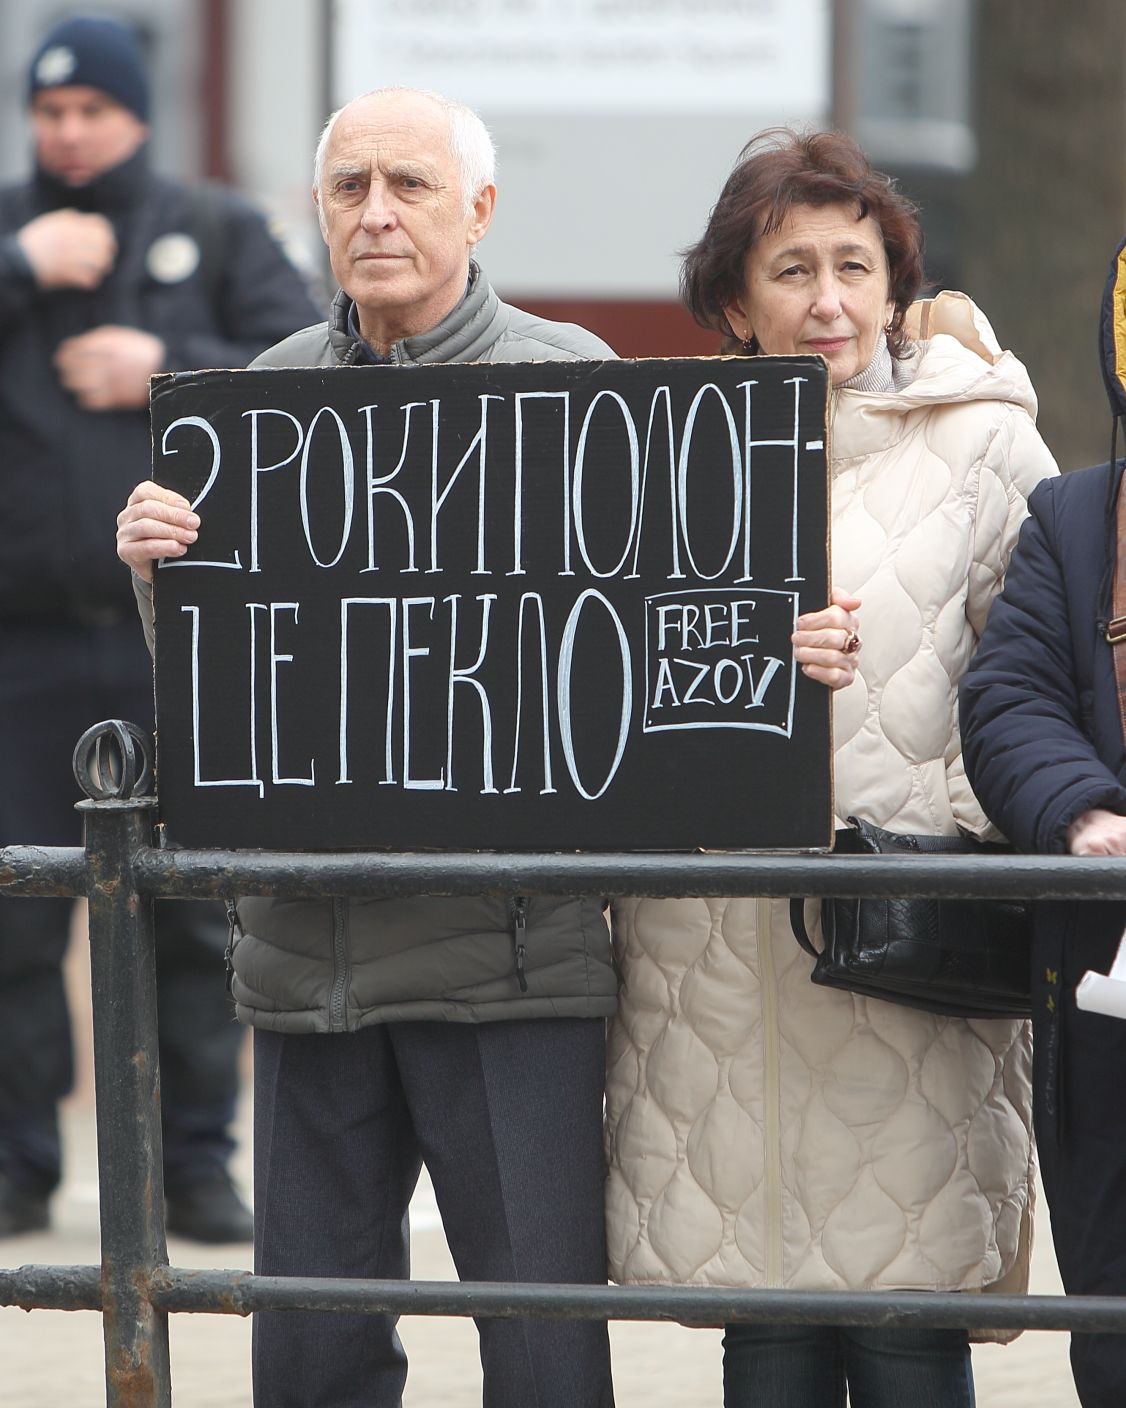 2 РОКИ ПОЛОН-
ЦЕ ПЕКЛО
FREE
AZOV